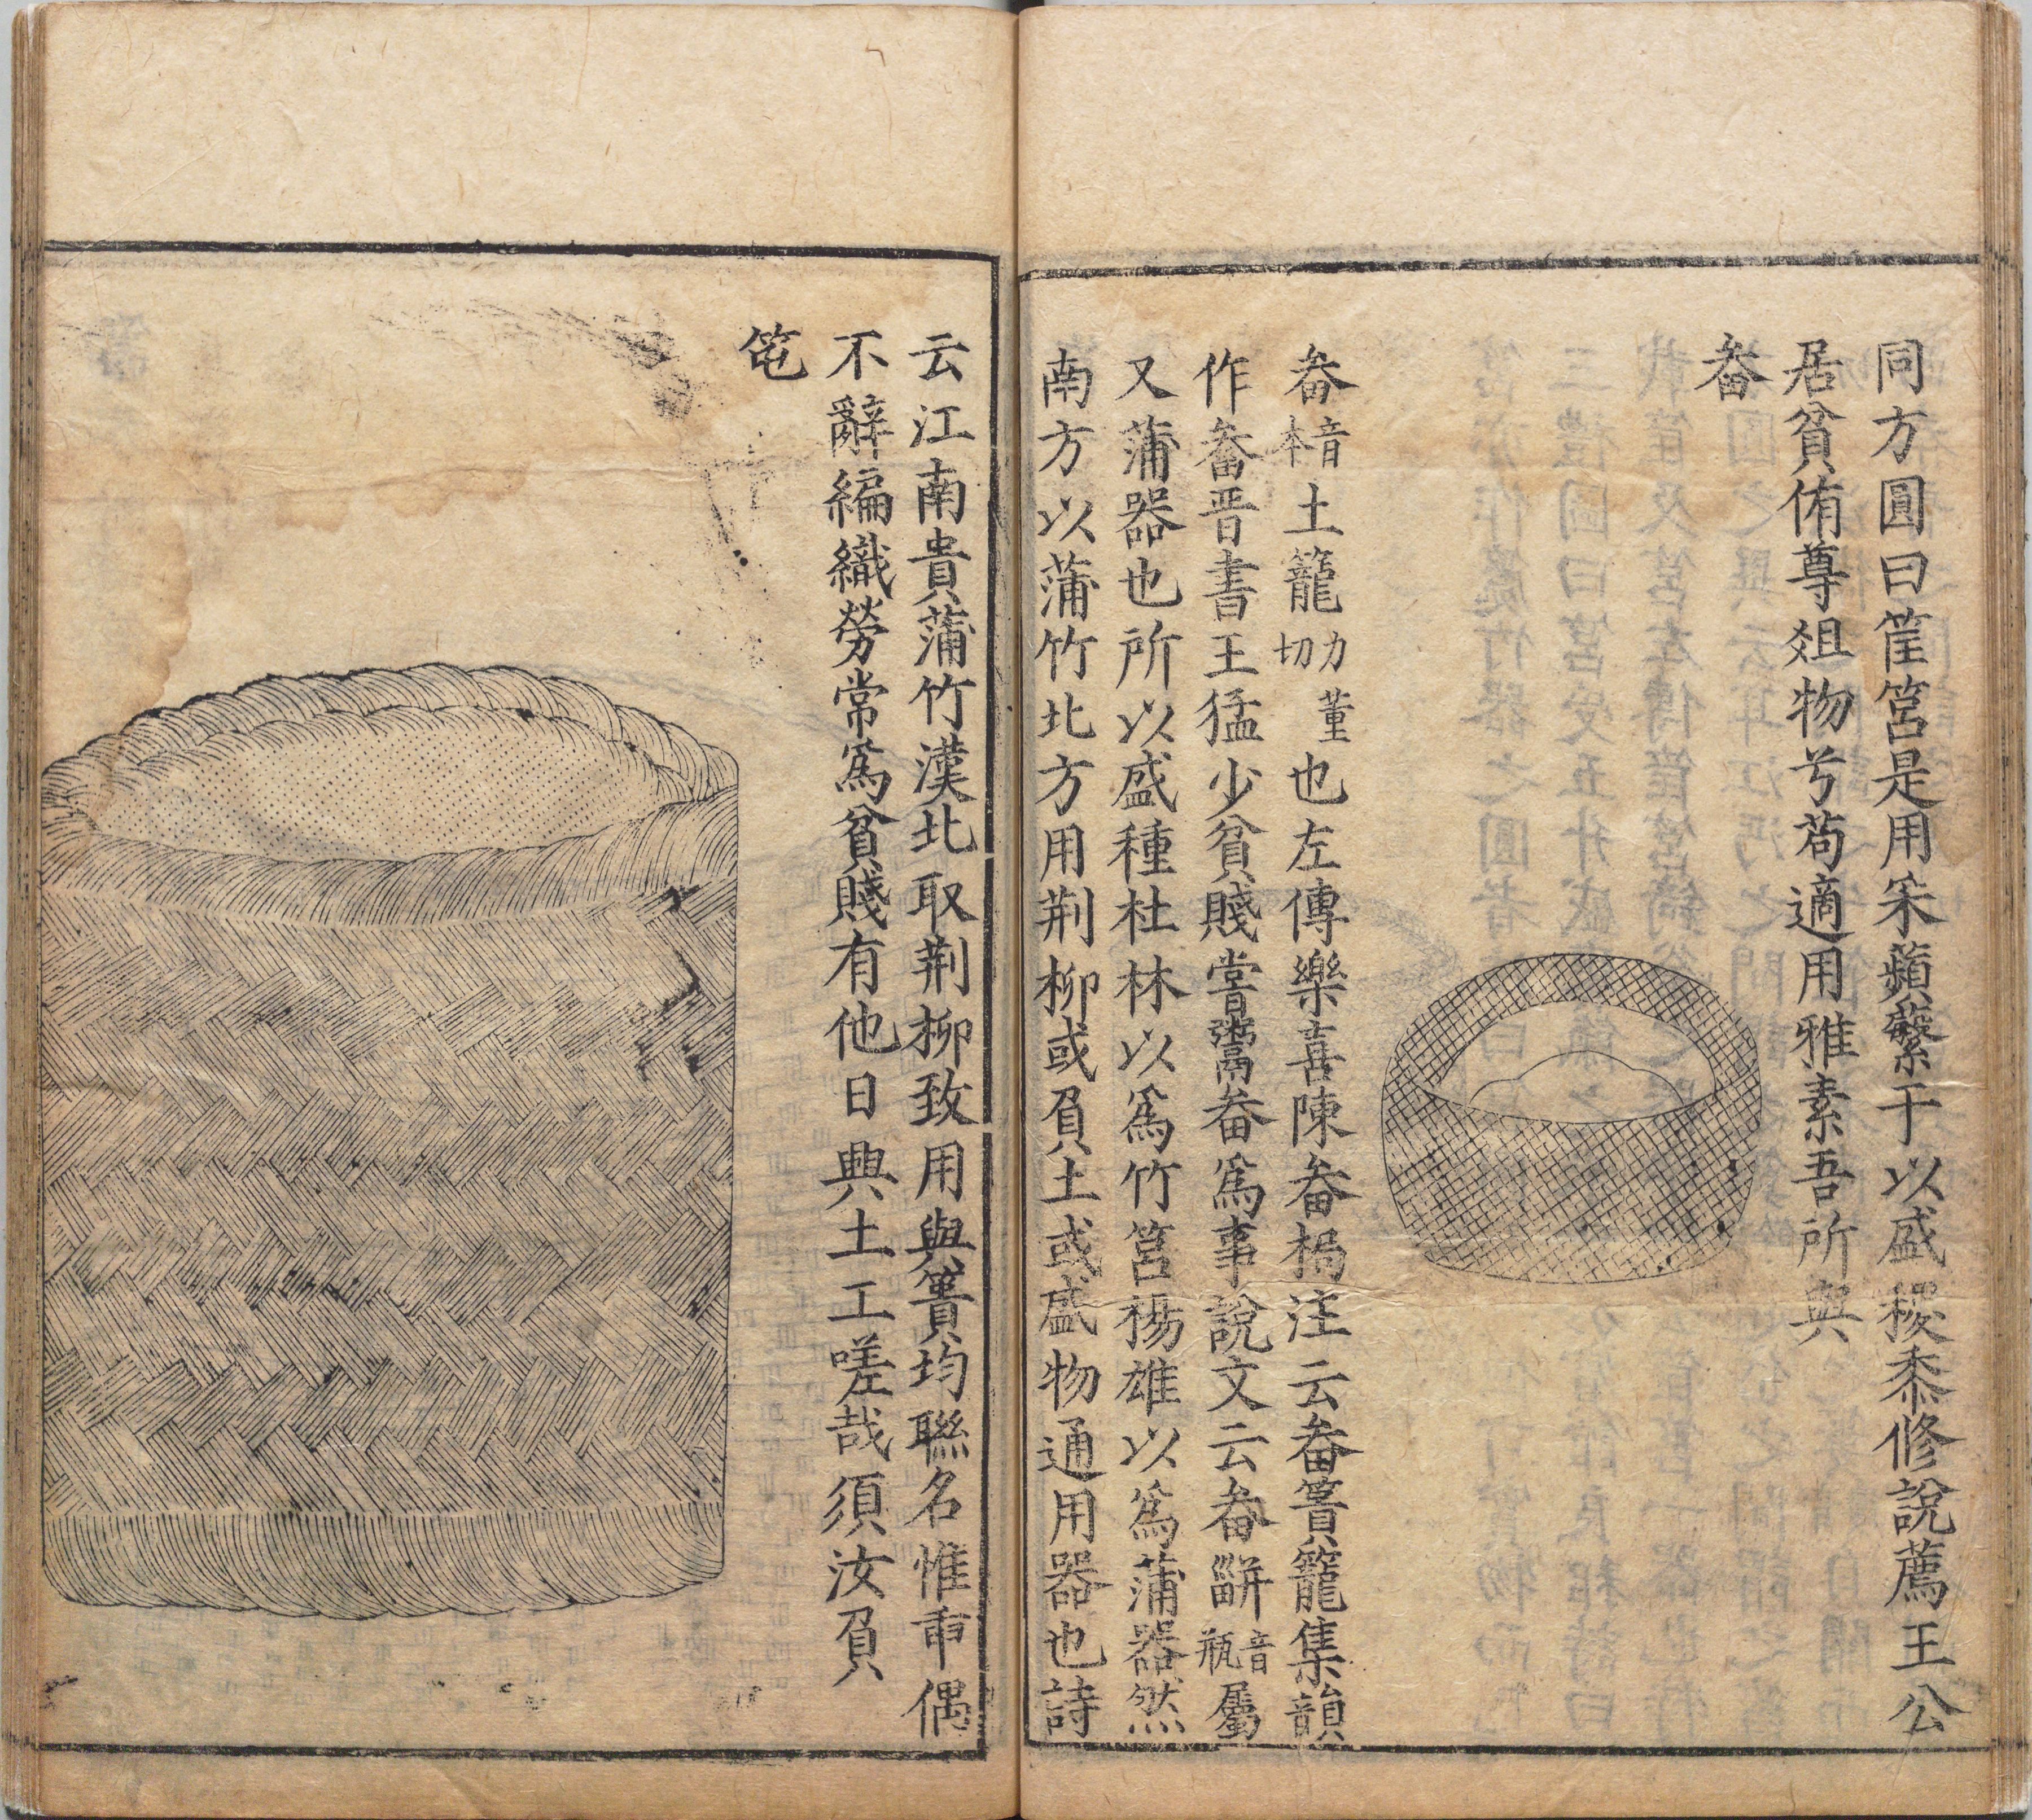 同方圓曰筐筥是用采蘋蘩于以盛稷黍修說薦王公
居貧侑尊俎物兮苟適用雅素吾所與
畚
畚音本土籠力董切也左傳樂喜陳畚挶注云畚簣籠集韻
作畚晋書王猛少貧賤嘗鬻畚爲事說文云畚𤰃音瓶屬
又蒲器也所以盛種杜林以爲竹筥楊雄以爲蒲器然
南方以蒲竹北方用荆柳或負土或盛物通用器也詩
云江南貴蒲竹漢北取荆柳致用與簣均聯名惟畚偶
不辭編織勞常爲貧賤有他日興土工嗟哉須汝負
笔